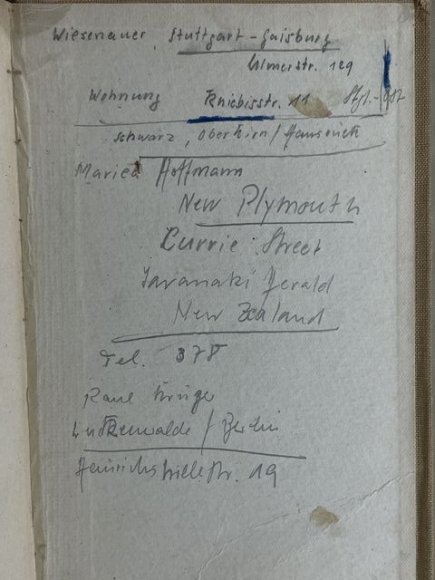 Wiesenauer, Stuttgart-Gaisburg
Ulmerstr. 129
Wohnung Kniebisstr. 11
Schwarz, Oberhirn/Hausruck
Hoffmann
New Plymouth
Currie Street
Taranaki Herald
New Zealand
Tel. 378
Krüger
Luckenwalde / Berlin
19